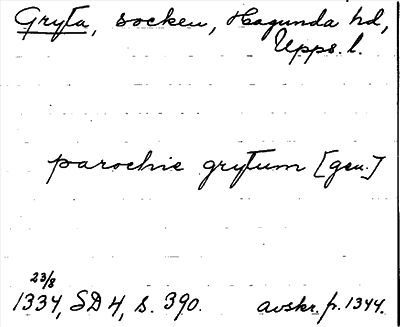 Gryta, socken, Hagunda hd,
Upps. l.
parochie grytum [gen.]
23/8
1334, SD 4, s. 390. avskr. fr. 1344.